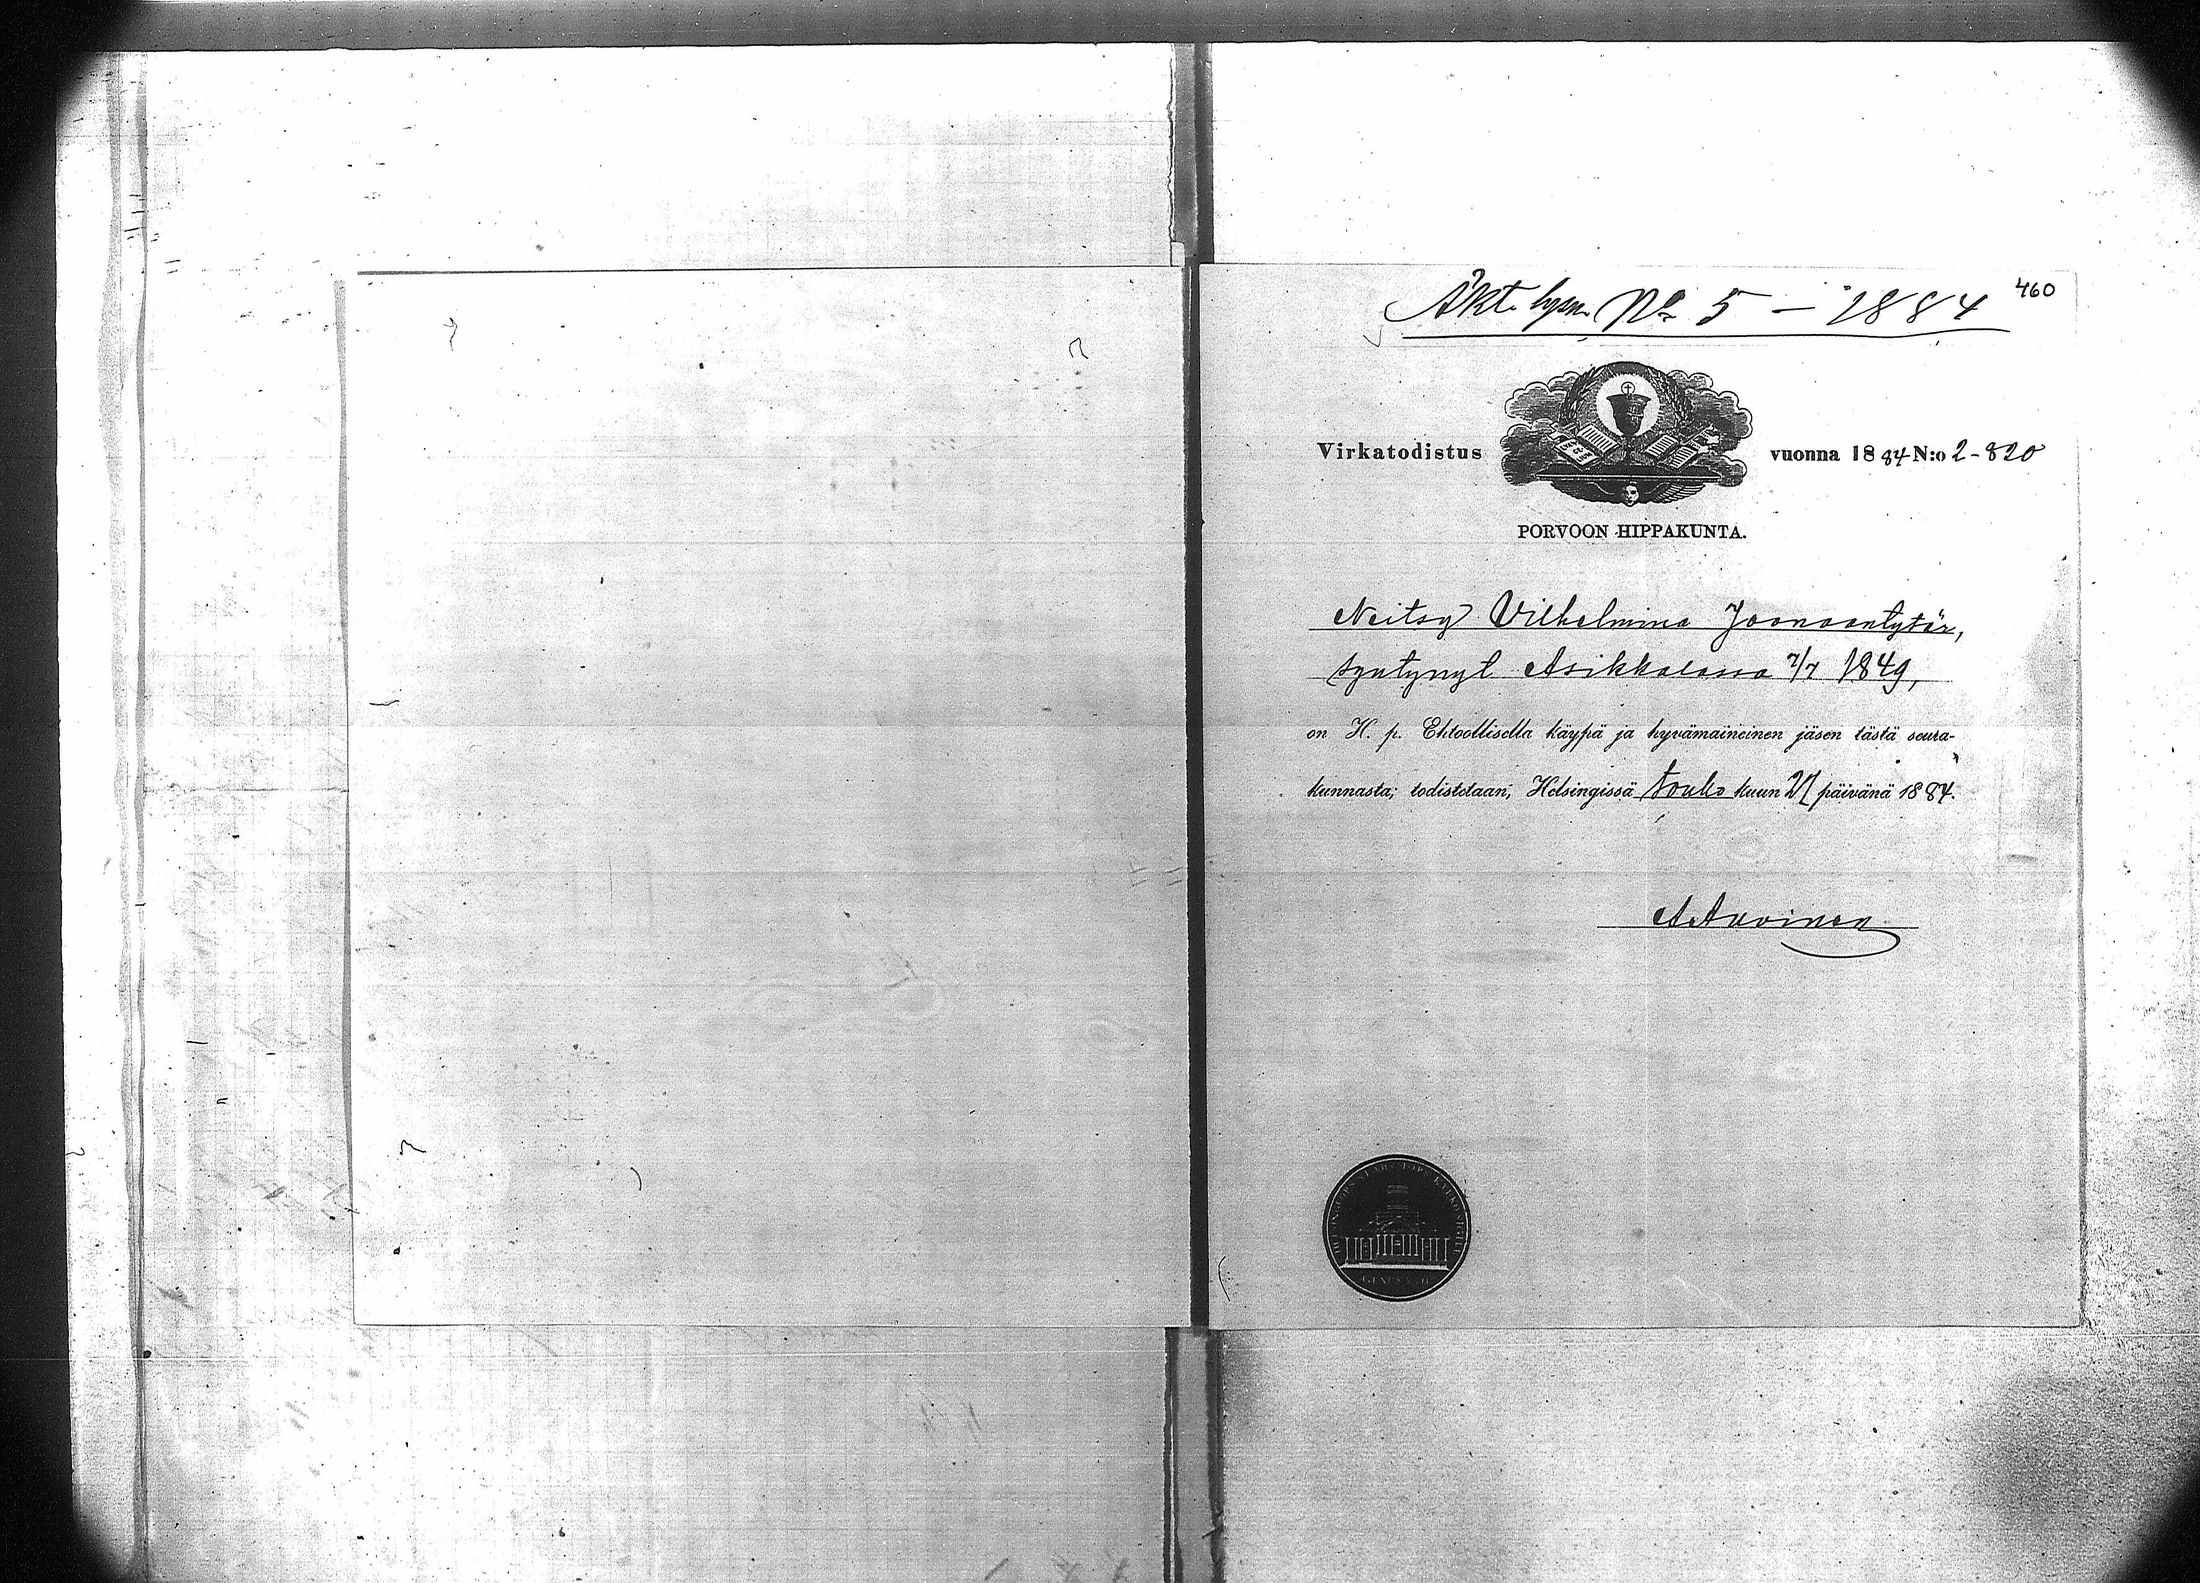 460
Äkt. lysn. No 5 – 1884
Virkatodistus vuonna 1884 N:o 2-820
PORVOON HIPPAKUNTA.
Neitsy Vilhelmina Joonaantytär,
syntynyt Asikkalassa 7/7 1849,
on H. p. Ehtoollisella käypä ja hyvämaineinen jäsen tästä seura-
kunnasta; todistetaan; Helsingissä touko kuun 21 päivänä 1884.
A. Auvinen